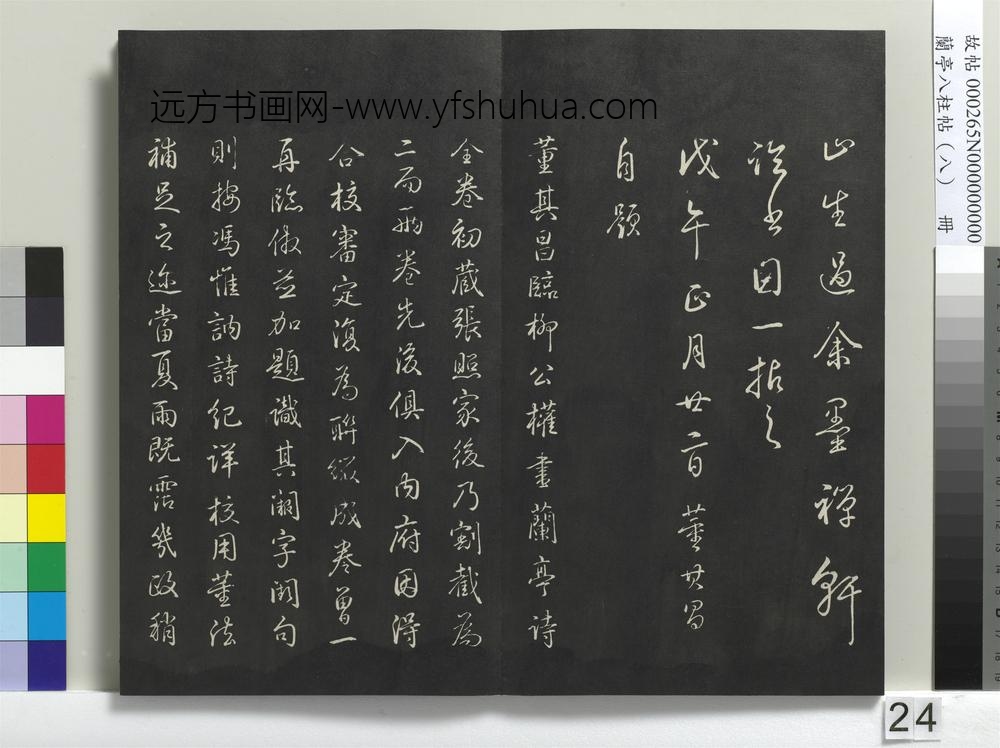 远方书画网-www.yfshuhua.com
故帖 000265N000000000
蘭亭八柱帖（八） 冊
山生過余墨禪軒
詒書因一拈之
戊午正月廿二日 董其昌
自題
董其昌臨柳公權書蘭亭詩
全卷初藏張照家後乃割截為
二而兩卷先後俱入内府因得
合校審定復為聯綴成卷曾一
再臨倣並加題識其闕字闕句
則按馮惟訥詩紀詳校用董法
補足之迩當夏雨既霑幾政稍
24